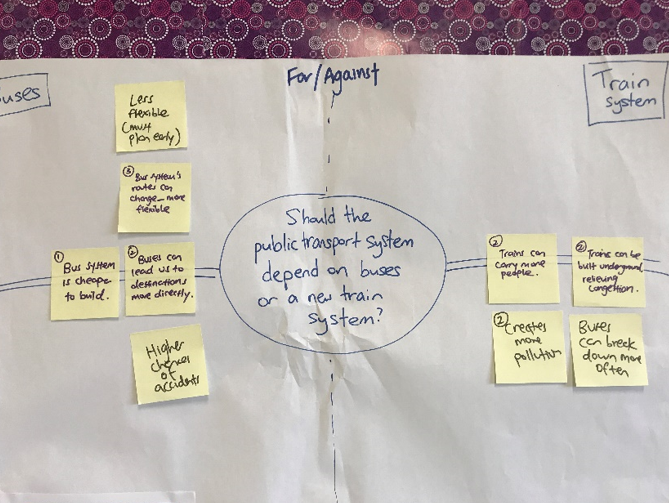 For/Against
uses
Train
system
Less
flexible
(must
plan early)
③ Bus system's
routes can
change – more
flexible
① Bus system
is cheape
to build.
② Buses can
lead us to
destinations
more directly.
Higher
chances
of
accidents
Should the
public transport system
depend on buses
or a new train
system?
② Trains can
carry more
people.
② Trains can be
built underground
relieving
congestion.
② Creates
more
pollution
Buses
can break
down more
often